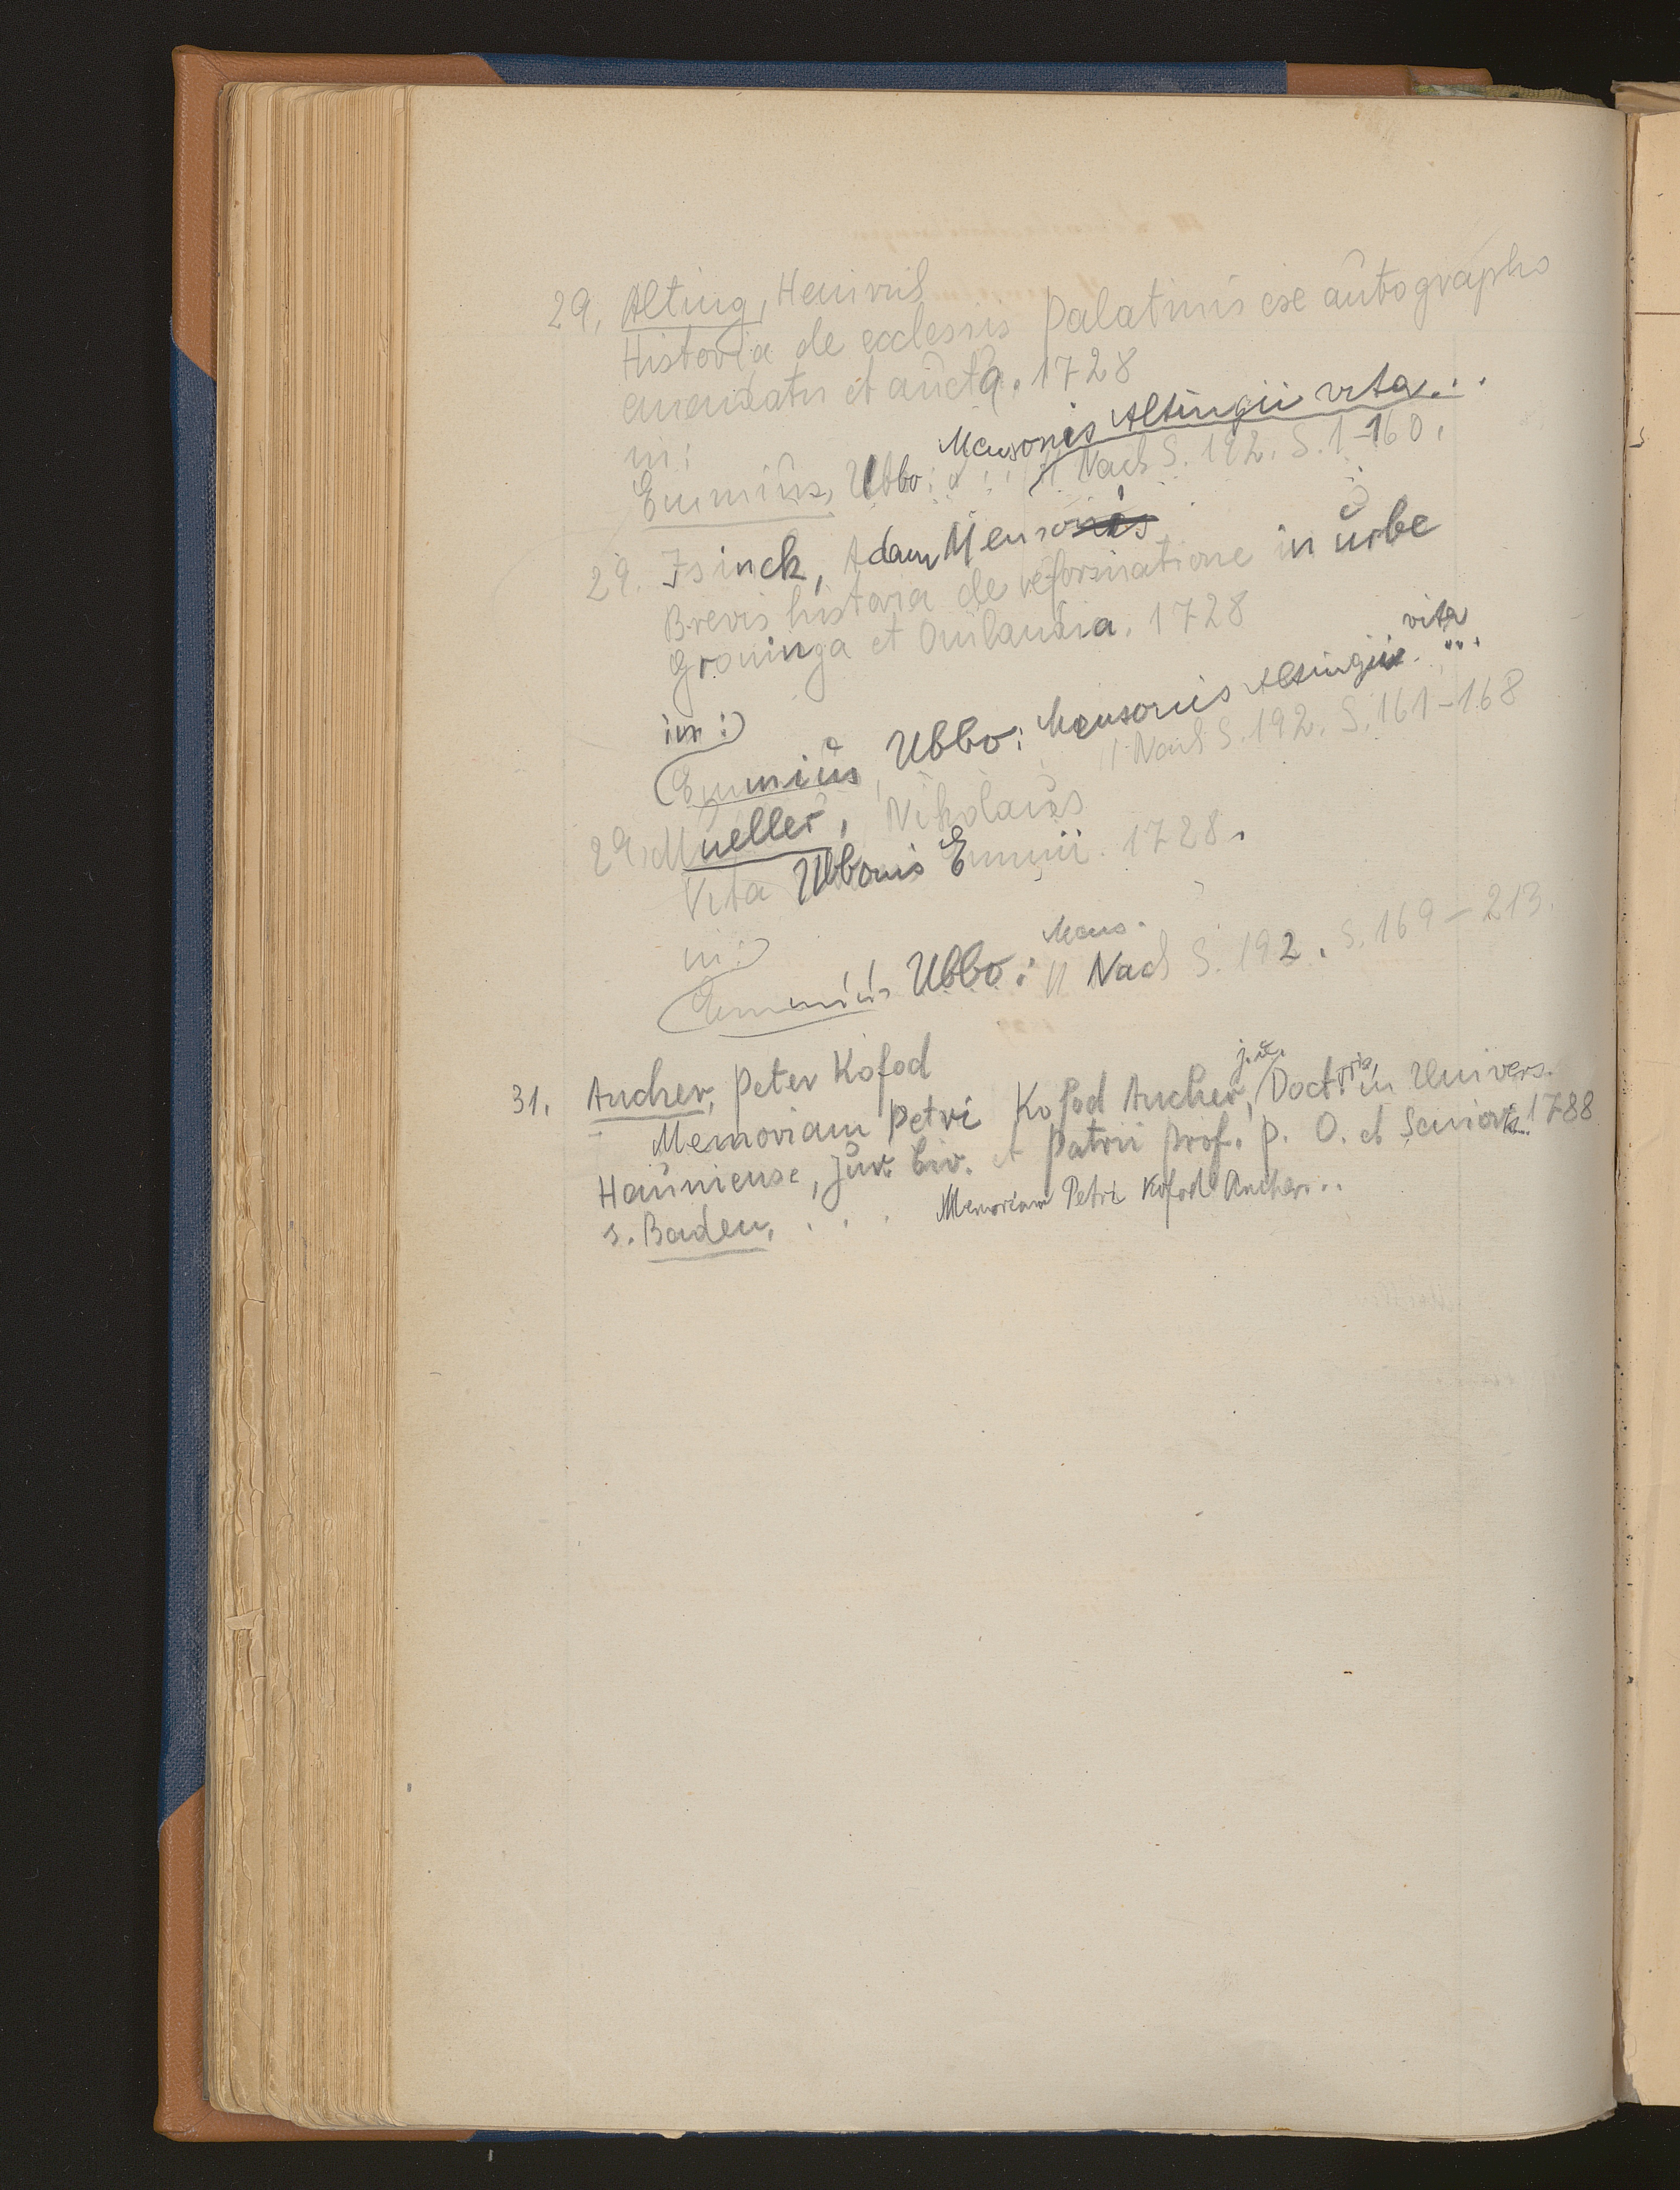 29. Alting, Heinrich
Historia de ecclesiis Palatinis ex autographo
emendatn et aucta. 1728
in:
Emmius, Ubbo: Mensonis Altingii vita...
// Nach S. 192. S. 1-160.
29. Isinck, Adam Menso
Brevis historia de reformatione in urbe
Groninga et Omlandia. 1728
in:
Emmius, Ubbo: Mensonis Altingii vita ...
// Nach S. 192. S. 161-168
29. Mueller, Nikolaus
Vita Ubbonis Emmii. 1728.
in:
Emmius Ubbo: Mens.
// Nach S. 192. S. 169-213.
31. Ancher, Peter Kofod
Memoriam Petri Kofod Ancher, j. u. Doctoris in Univers.
Hauniense, Jur. Civ. et Patrii Prof. P. O. et Senioris... 1788
s. Baden, . . . Memoriam Petri Kofod Ancher...